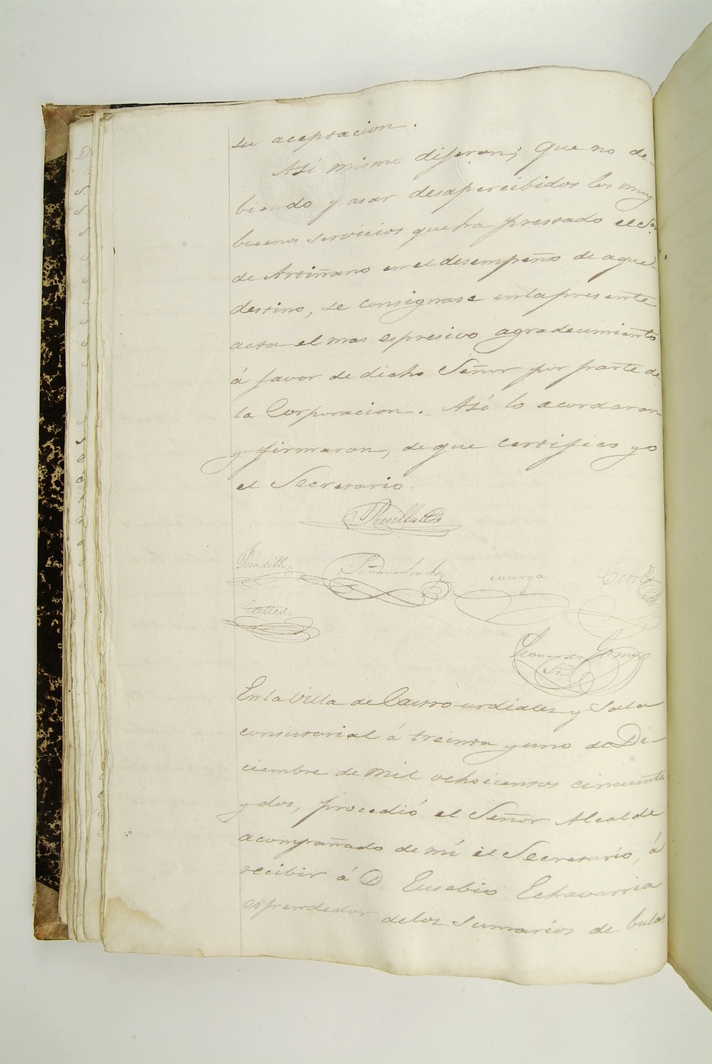 su aceptacion.
Asi mismo dijeron; Que no de-
biendo pasar desapercibidos los muy
buenos servicios que ha prestado el Sr.
de Artiñano en el desempeño de aquel
destino, se consignase en la presente
acta el mas espresivo agradecimiento
á favor de dicho Señor por parte de
la Corporacion. Asi lo acordaron
y firmaron, de que certifico yo
el Secretario.
Peñarredonda
Leonardo Gomez
Srio
En la Villa de Castro-urdiales y Sala
consistorial á treinta y uno de Di-
ciembre de mil ochocientos cincuenta
y dos, procedió el Señor Alcalde
acompañado de mí el Secretario, á
recibir á D. Eusebio Echavarria
espendedor de los Sumarios de bulas